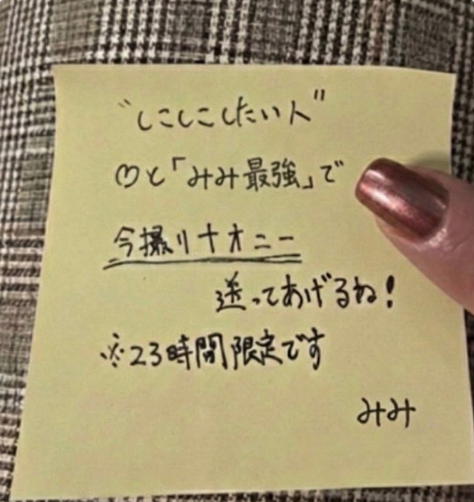 "しこしこしたい人"
♡と「みみ最強」で
今撮りオナニー
送ってあげるね!
※23時間限定です
みみ